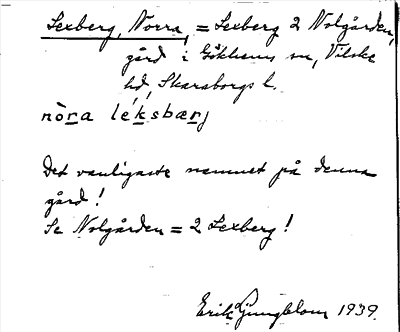 Lexberg, Norra, = Lexberg 2 Nolgården,
gård i Gökhems sn, Vilske
hd, Skaraborgs l.
nòra léksbærj
Det vanligaste namnet på denna
gård!
Se Nolgården = 2 Lexberg!
Erik Ljungblom 1939.